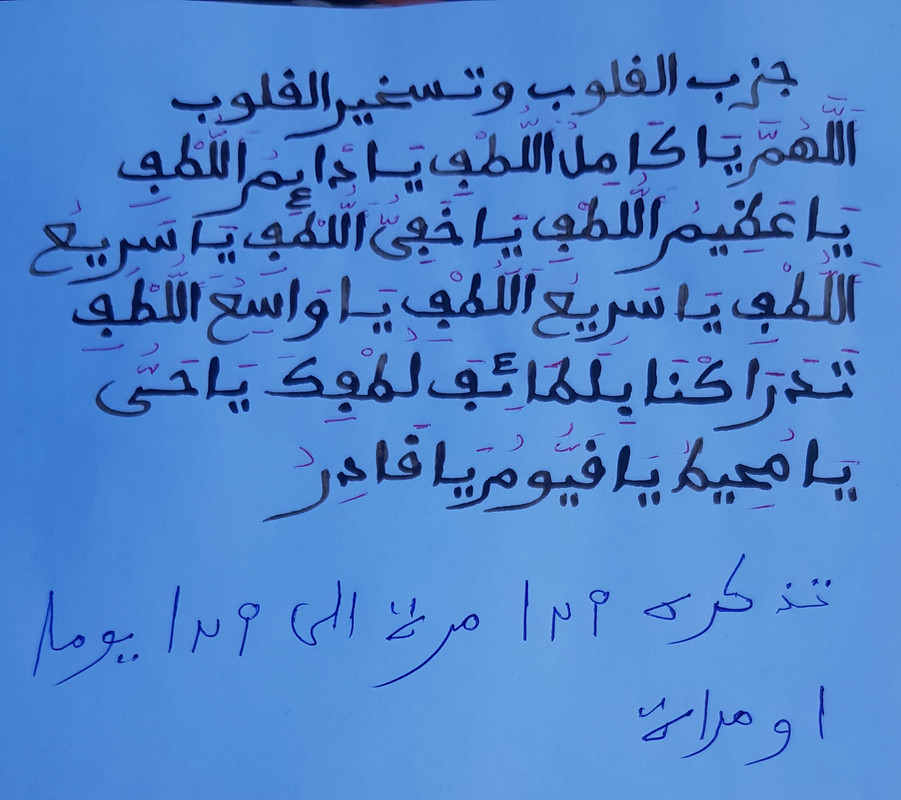 جزب القلوب وتسخير القلوب
اَللَّهُمَّ يَا كَامِلُ اللُّطْفِ يَا دَائِمُ اللُّطْفِ
يَا عَظِيمُ اللُّطْفِ يَا خَفِيُّ اللُّطْفِ يَا سَرِيعُ
اللُّطْفِ يَا سَرِيعُ اللُّطْفِ يَا وَاسِعُ اللُّطْفِ
تَدَرَاكْنَا بِلَطَائِفِ لُطْفِكَ يَا حَيُّ
يَا مُحِيطُ يَا قَيُّومُ يَا قَادِرُ
تذكره ١٢٩ مرة الى ١٢٩ يوما
او مراة